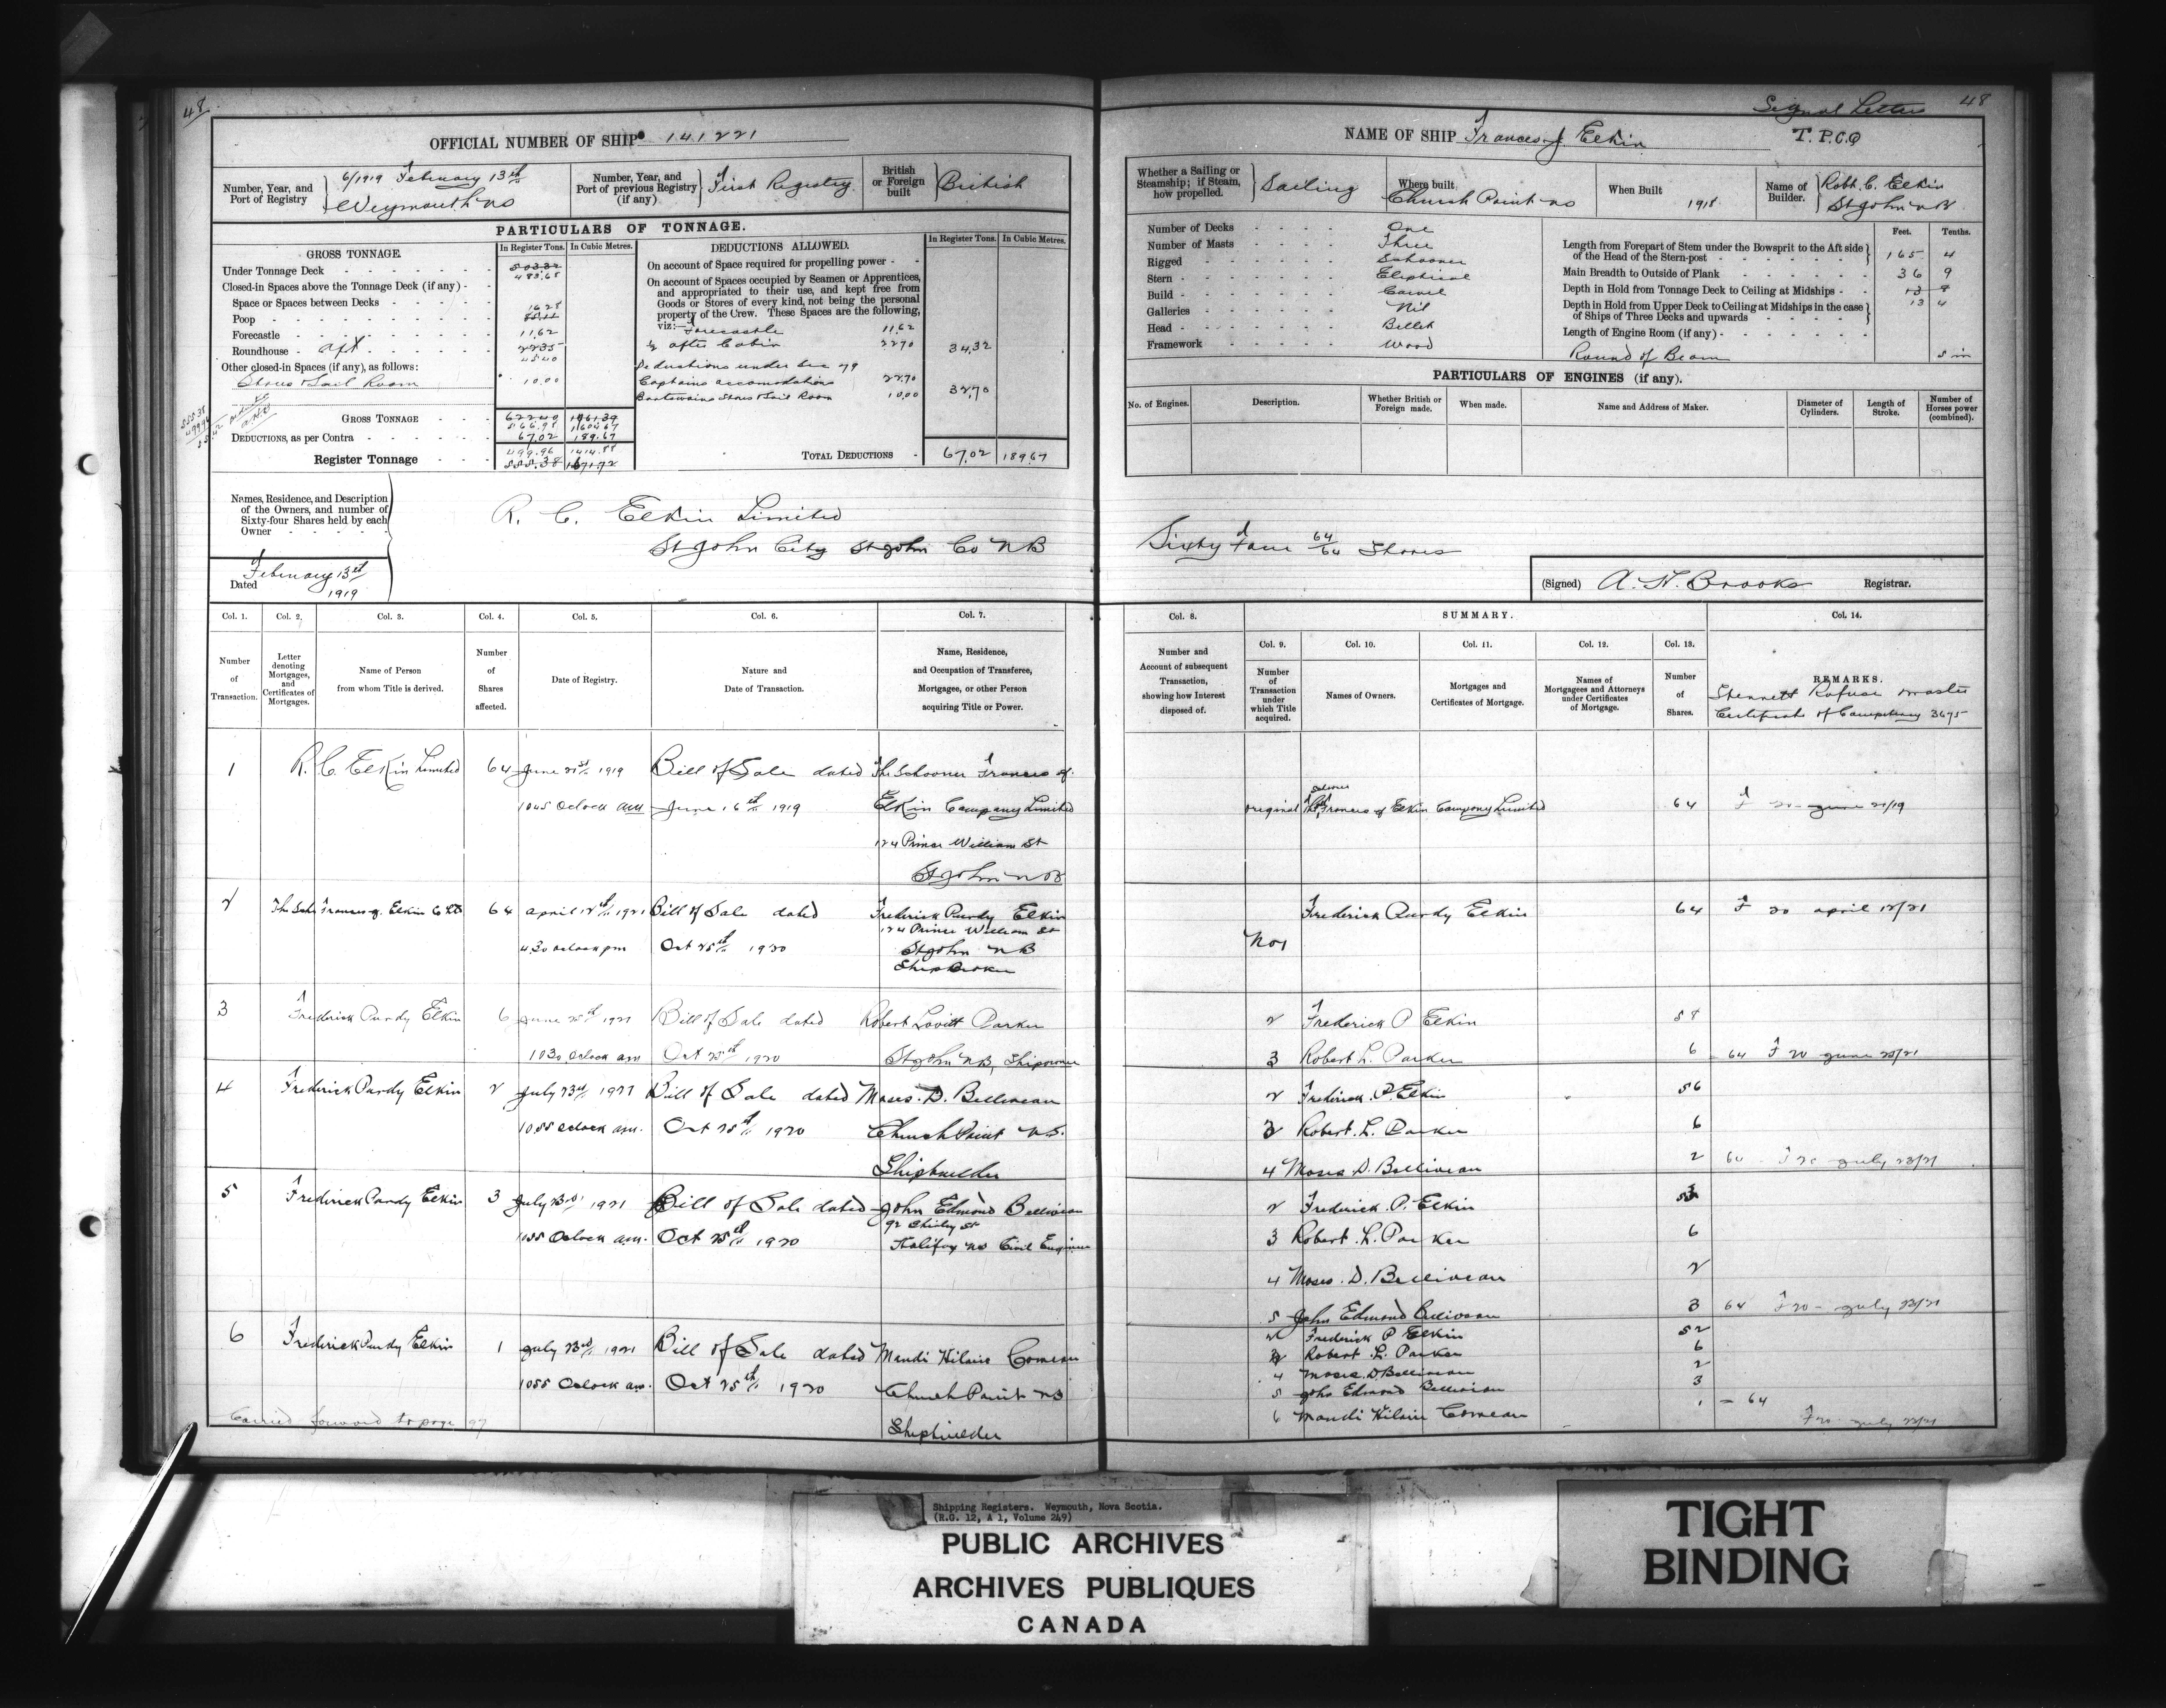 48
OFFICIAL NUMBER OF SHIP 141221
Number, Year, and Port of Registry
6/1919 February 13th
Weymouth NS
Number, Year, and Port of previous Registry (if any)
First Registry
British or Foreign built
British
PARTICULARS OF TONNAGE.
GROSS TONNAGE.
In Register Tons.
In Cubic Metres.
Under Tonnage Deck
503.32
483.65
Closed-in Spaces above the Tonnage Deck (if any)
Space or Spaces between Decks
Poop
16.28
Forecastle
11.62
Roundhouse aft
22.35
45.40
Other closed-in Spaces (if any), as follows:
Stores & Sail Room
10.00
GROSS TONNAGE
622.40
566.98
DEDUCTIONS, as per Contra
67.02 189.67
Register Tonnage
499.96 1414.88
555.38
DEDUCTIONS ALLOWED.
In Register Tons.
In Cubic Metres.
On account of Space required for propelling power
On account of Spaces occupied by Seamen or Apprentices, and appropriated to their use, and kept free from Goods or Stores of every kind, not being the personal property of the Crew. These Spaces are the following, viz:—
Forecastle 11.62
½ after Cabin 22.70
34.32
Deductions under sec 79
Captains accomodations 22.70
Boatswains Stores & Sail Room 10.00
32.70
TOTAL DEDUCTIONS
67.02 189.67
Names, Residence, and Description of the Owners, and number of Sixty-four Shares held by each Owner
R. C. Elkin Limited
St John City St John Co NB
Dated February 13th 1919
Col. 1.
Number of Transaction.
Col. 2.
Letter denoting Mortgages, and Certificates of Mortgages.
Col. 3.
Name of Person from whom Title is derived.
Col. 4.
Number of Shares affected.
Col. 5.
Date of Registry.
Col. 6.
Nature and Date of Transaction.
Col. 7.
Name, Residence, and Occupation of Transferee, Mortgagee, or other Person acquiring Title or Power.
1 R. C. Elkin Limited 64 June 21st 1919 Bill of Sale dated The Schooner Frances J.
10.45 Oclock am June 16th 1919 Elkin Company Limited
124 Prince William St
St John NB
2 The Sch Frances J. Elkin Co Ltd 64 April 12th 1921 Bill of Sale dated Frederick Purdy Elkin
124 Prince William St
4.30 oclock pm Oct 25th 1920 St John NB
Shipbroker
3 Frederick Purdy Elkin 6 June 25th 1921 Bill of Sale dated Robert Lovitt Parker
10.30 Oclock am Oct 25th 1920 St John NB, Shipowner
4 Frederick Purdy Elkin 2 July 23rd 1921 Bill of Sale dated Moses. D. Belliveau
10.55 Oclock am. Oct 25th 1920 Church Point N.S.
Shipbuilder
5 Frederick Purdy Elkin 3 July 23rd 1921 Bill of Sale dated John Edmond Belliveau
92 Shirley St
10.55 Oclock am. Oct 25th 1920 Halifax NS Civil Engineer
6 Frederick Purdy Elkin 1 July 23rd 1921 Bill of Sale dated Mandi Hilaire Comeau
10.55 Oclock am. Oct 25th 1920 Church Point NS
Shipbuilder
Carried forward to page 97
48
Signal Letters
T. P. C. Q
NAME OF SHIP Frances J. Elkin
Whether a Sailing or Steamship; if Steam, how propelled.
Sailing
Where built
Church Point NS
When Built
1918
Name of Builder.
Robt. C. Elkin
St John NB
Number of Decks One
Number of Masts Three
Rigged Schooner
Stern Eliptical
Build Carvel
Galleries Nil
Head Billet
Framework Wood
Feet. Tenths.
Length from Forepart of Stem under the Bowsprit to the Aft side of the Head of the Stern-post 165 4
Main Breadth to Outside of Plank 36 9
Depth in Hold from Tonnage Deck to Ceiling at Midships 13 8
Depth in Hold from Upper Deck to Ceiling at Midships in the case of Ships of Three Decks and upwards 13 4
Length of Engine Room (if any)
Round of Beam 5 in
PARTICULARS OF ENGINES (if any).
No. of Engines.
Description.
Whether British or Foreign made.
When made.
Name and Address of Maker.
Diameter of Cylinders.
Length of Stroke.
Number of Horses power (combined).
Sixty Four 64/64 Shares
(Signed) A. H. Brooks Registrar.
Col. 8.
Number and Account of subsequent Transaction, showing how Interest disposed of.
SUMMARY.
Col. 9.
Number of Transaction under which Title acquired.
Col. 10.
Names of Owners.
Col. 11.
Mortgages and Certificates of Mortgage.
Col. 12.
Names of Mortgagees and Attorneys under Certificates of Mortgage.
Col. 13.
Number of Shares.
Col. 14.
REMARKS.
Rafuse Master
Certificate of Competency 3695
original The Schooner Frances J Elkin Company Limited 64 F 20 June 21/19
No 1 Frederick Purdy Elkin 64 F 20 April 12/21
2 Frederick P Elkin 58
3 Robert L. Parker 6 64 F 20 June 25/21
2 Frederick. P. Elkin 56
3 Robert. L. Parker 6
4 Moses D. Belliveau 2 64 F 20 July 23/21
2 Frederick. P. Elkin 53
3 Robert. L. Parker 6
4 Moses. D. Belliveau 2
5 John Edmond Belliveau 3 64 F 20 July 23/21
2 Frederick P Elkin 52
3 Robert L. Parker 6
4 Moses. D. Belliveau 2
5 John Edmond Belliveau 3
6 Mandi Hilaire Comeau 1 — 64
F 20 July 23/21
Shipping Registers. Weymouth, Nova Scotia.
(R.G. 12, A 1, Volume 249)
PUBLIC ARCHIVES
ARCHIVES PUBLIQUES
CANADA
TIGHT
BINDING